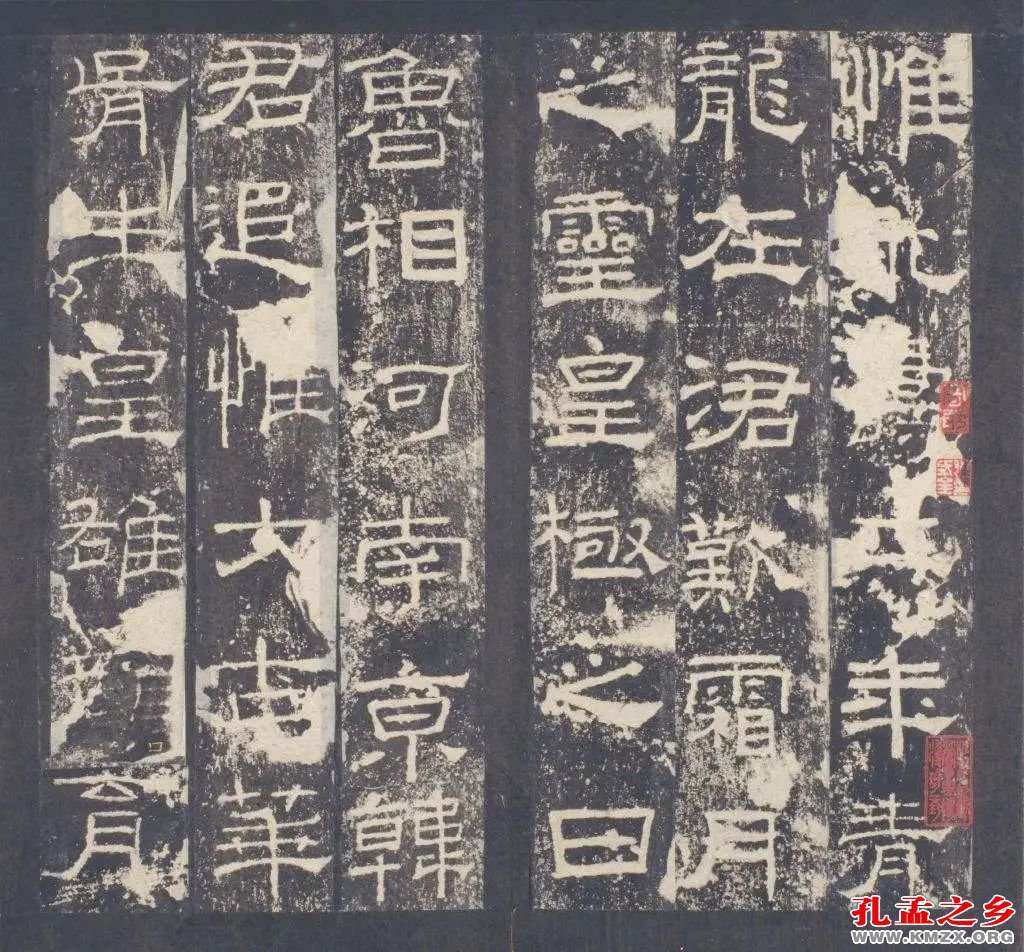 惟永壽二年青
龍在涒歎霜月
之靈皇極之日
魯相河南京韓
君追惟大古華
胥生皇雄育
孔孟之乡
WWW.KMZX.ORG